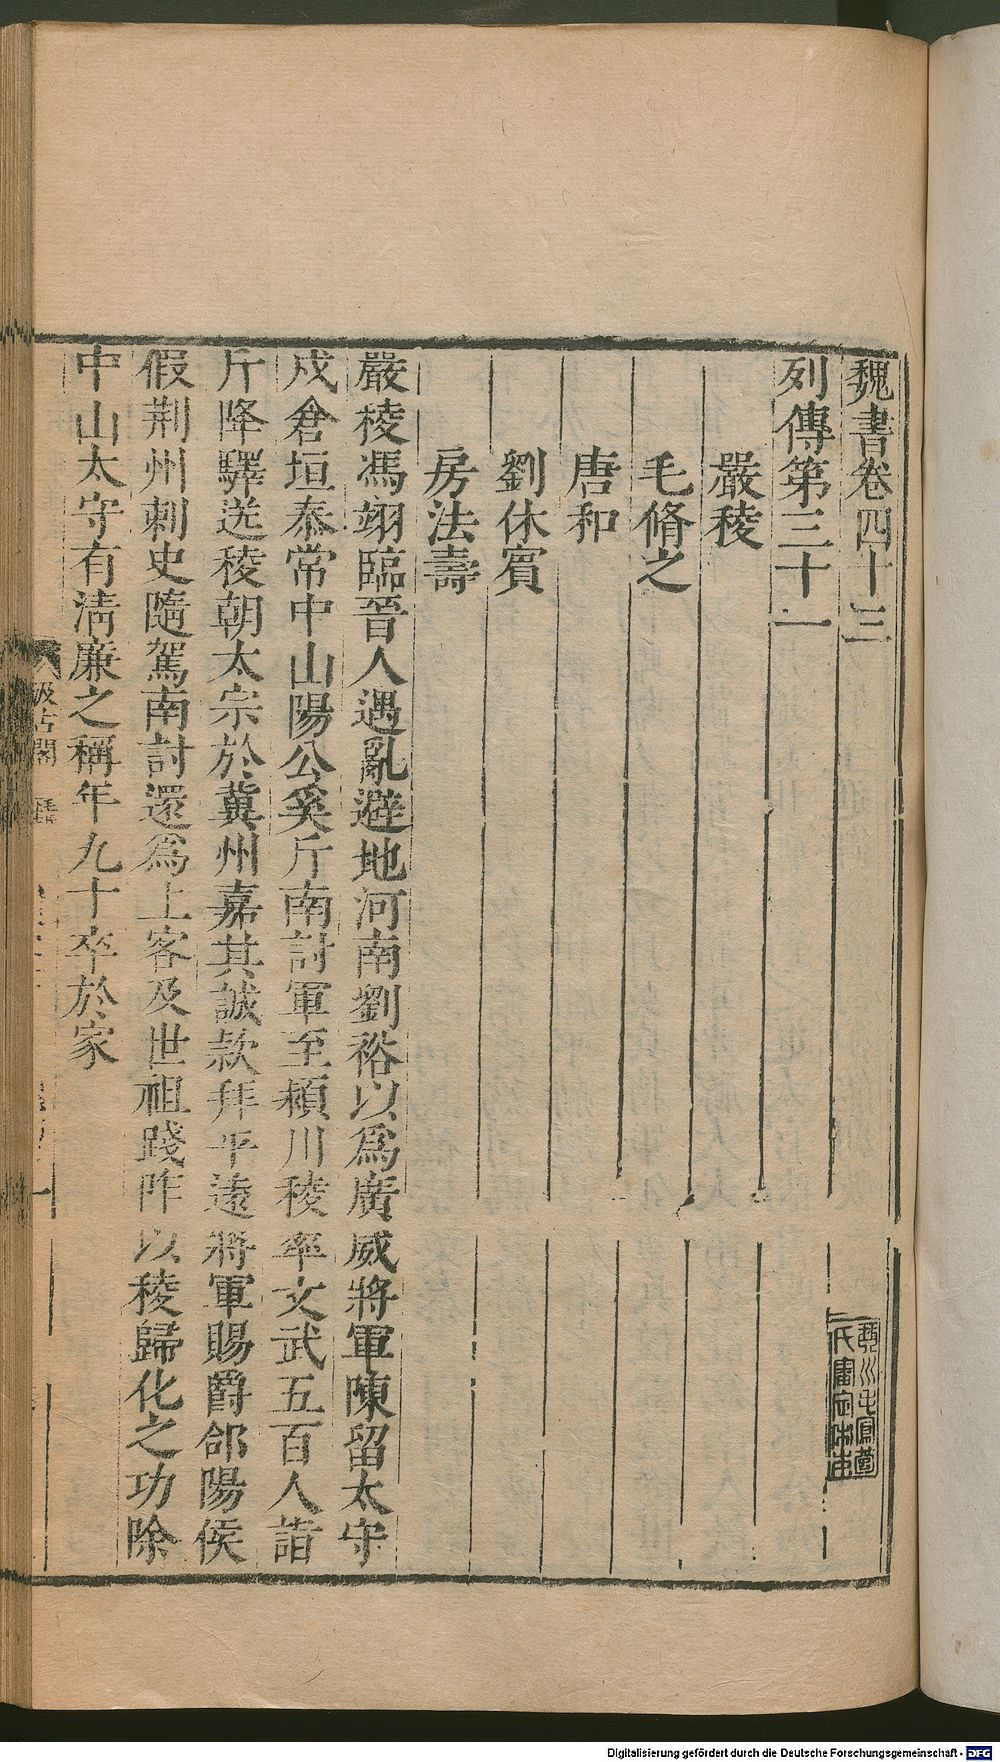 魏書卷四十三
列傳第三十一
嚴稜
毛脩之
唐和
劉休賓
房法壽
嚴稜馮翊臨晉人遇亂避地河南劉裕以爲廣威將軍陳留太守
戍倉垣泰常中山陽公奚斤南討軍至潁川稜率文武五百人詣
斤降驛送稜朝太宗於冀州嘉其誠款拜平遠將軍賜爵郃陽侯
假荆州刺史隨駕南討還爲上客及世祖踐阼以稜歸化之功除
中山太守有淸廉之稱年九十卒於家
汲古閣
毛鳳苞
氏審定宋本
Digitalisierung gefördert durch die Deutsche Forschungsgemeinschaft - DFG